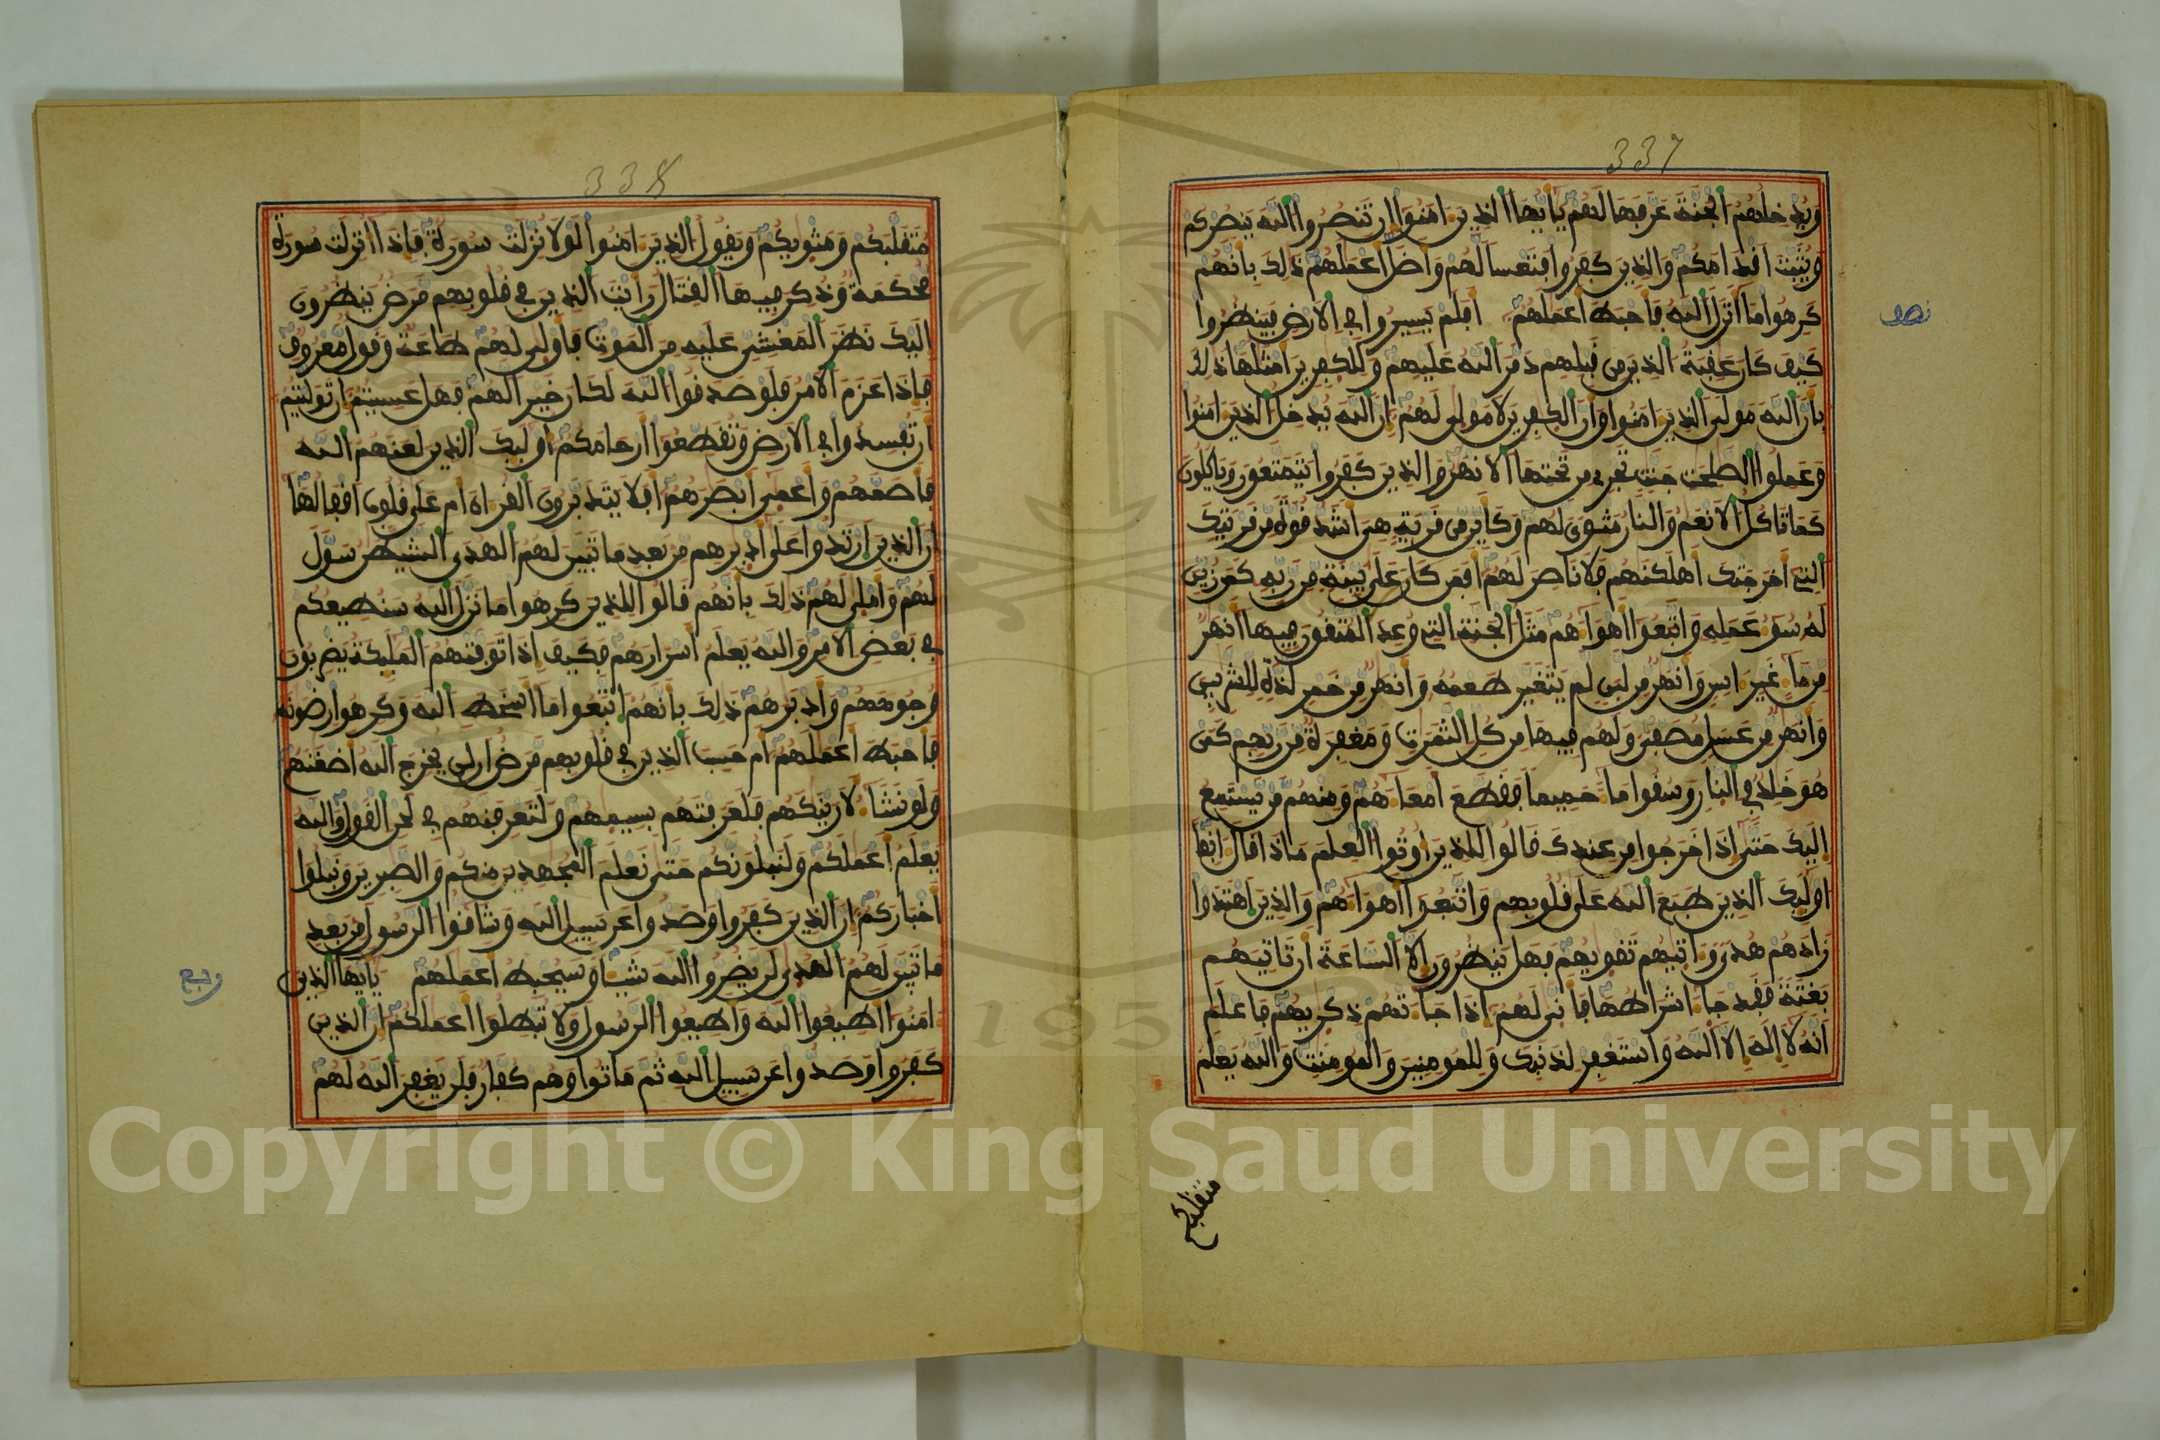 337
ويدخلهم الجنة عرفها لهم يايها الذين امنوا ان تنصروا الله ينصركم
ويثبت اقدامكم والذين كفروا فتعسا لهم واضل اعملهم ذلك بانهم
كرهوا ما انزل الله فاحبط اعملهم افلم يسيروا في الارض فينظروا
كيف كان عقبة الذين من قبلهم دمر الله عليهم وللكفرين امثلها ذلك
بان الله مولى الذين امنوا وان الكفرين لا مولى لهم ان الله يدخل الذين امنوا
وعملوا الصلحت جنت تجري من تحتها الانهر والذين كفروا يتمتعون وياكلون
كما تاكل الانعم والنار مثوى لهم وكاين من قرية هي اشد قوة من قريتك
التي اخرجتك اهلكنهم فلا ناصر لهم افمن كان على بينة من ربه كمن زين
له سوء عمله واتبعوا اهواءهم مثل الجنة التي وعد المتقون فيها انهر
من ماء غير ءاسن وانهر من لبن لم يتغير طعمه وانهر من خمر لذة للشربين
وانهر من عسل مصفى ولهم فيها من كل الثمرت ومغفرة من ربهم كمن
هو خلد في النار وسقوا ماء حميما فقطع امعاءهم ومنهم من يستمع
اليك حتى اذا خرجوا من عندك قالوا للذين اوتوا العلم ماذا قال انفا
اوليك الذين طبع الله على قلوبهم واتبعوا اهواءهم والذين اهتدوا
زادهم هدى واتيهم تقويهم فهل ينظرون الا الساعة ان تاتيهم
بغتة فقد جاء اشراطها فانى لهم اذا جاءتهم ذكريهم فاعلم
انه لا اله الا الله واستغفر لذنبك وللمومنين والمومنت والله يعلم
متقلبكم
نصف
338
متقلبكم ومثويكم ويقول الذين امنوا لولا نزلت سورة فاذا انزلت سورة
محكمة وذكر فيها القتال رايت الذين في قلوبهم مرض ينظرون
اليك نظر المغشي عليه من الموت فاولى لهم طاعة وقول معروف
فاذا عزم الامر فلو صدقوا الله لكان خيرا لهم فهل عسيتم ان توليتم
ان تفسدوا في الارض وتقطعوا ارحامكم اوليك الذين لعنهم الله
فاصمهم واعمى ابصرهم افلا يتدبرون القران ام على قلوب اقفالها
ان الذين ارتدوا على ادبرهم من بعد ما تبين لهم الهدى الشيطن سول
لهم واملى لهم ذلك بانهم قالوا للذين كرهوا ما نزل الله سنطيعكم
في بعض الامر والله يعلم اسرارهم فكيف اذا توفتهم المليكة يضربون
وجوههم وادبرهم ذلك بانهم اتبعوا ما اسخط الله وكرهوا رضونه
فاحبط اعملهم ام حسب الذين في قلوبهم مرض ان لن يخرج الله اضغنهم
ولو نشاء لارينكهم فلعرفتهم بسيمهم ولتعرفنهم في لحن القول والله
يعلم اعملكم ولنبلونكم حتى نعلم المجهدين منكم والصبرين ونبلوا
اخباركم ان الذين كفروا وصدوا عن سبيل الله وشاقوا الرسول من بعد
ما تبين لهم الهدى لن يضروا الله شيئا وسيحبط اعملهم يايها الذين
امنوا اطيعوا الله واطيعوا الرسول ولا تبطلوا اعملكم ان الذين
كفروا وصدوا عن سبيل الله ثم ماتوا وهم كفار فلن يغفر الله لهم
ربع
1957
Copyright © King Saud University